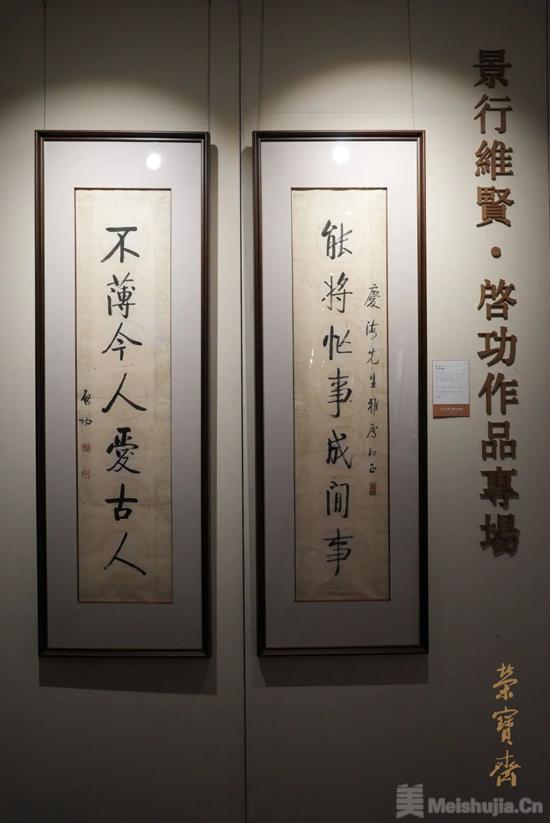 景行維賢·啓功作品專場
榮寶齋
慶海先生雅屬即正
能將忙事成閒事
不薄今人愛古人
啟功
美 Meishujia.Cn